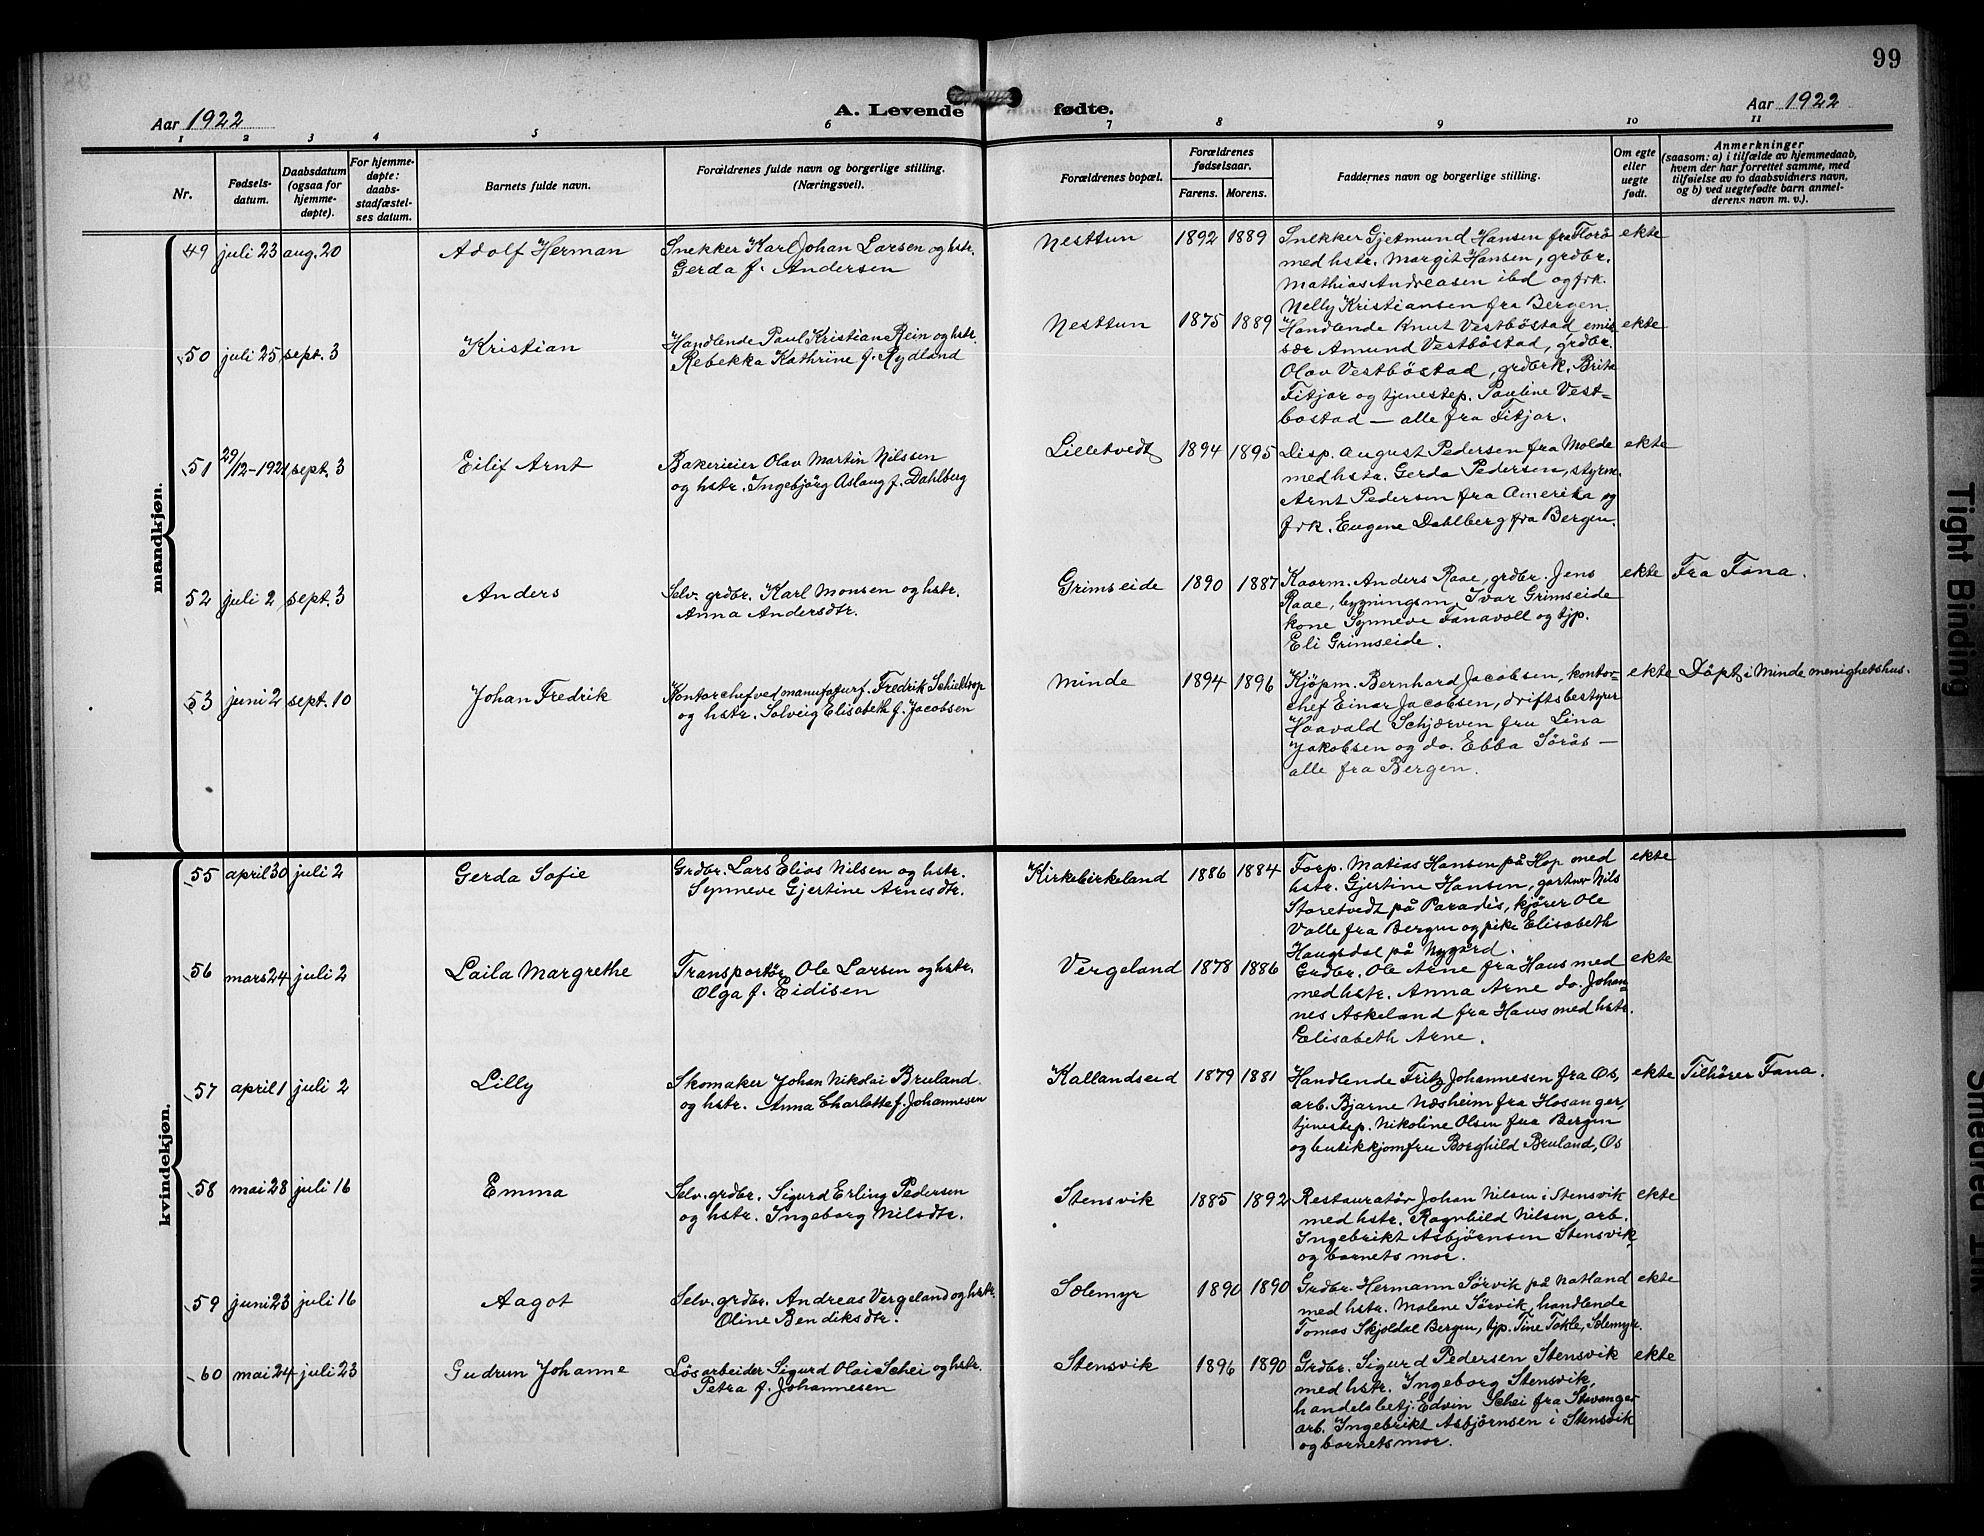 99
Aar 1922
A. Levende fødte.
Aar 1922
1 2 3 4 5 6 7 8 9 10 11
Nr.
Fødsels-
datum.
Daabsdatum
(ogsaa for
hjemme-
døpte).
For hjemme-
døpte:
daabs-
stadfæstel-
ses datum.
Barnets fulde navn.
Forældrenes fulde navn og borgerlige stilling.
(Næringsvei).
Forældrenes bopæl.
Forældrenes
fødselsaar.
Farens. Morens.
Faddernes navn og borgerlige stilling.
Om egte
eller
uegte
født.
Anmerkninger
(saasom: a) i tilfælde av hjemmedaab,
hvem der har forrettet samme, med
tilføielse av to daabsvidners navn,
og b) ved uegtefødte barn anmel-
derens navn m. v.).
mandkjøn.
49 juli 23 aug. 20 Adolf Herman
Snekker Karl Johan Larsen og hstr.
Gerda f. Andersen
Nesttun 1892 1889
Snekker Gjetmund Hansen fra Florø
med hstr. Margit Hansen, grdbr.
Mathias Andreasen ibd og frk.
Nelly Kristiansen fra Bergen.
ekte
50 juli 25 sept. 3 Kristian
Handlende Paul Kristian Rein og hstr.
Rebekka Kathrine f. Rydland
Nesttun 1875 1889
Handlende Knut Vestbøstad emis
sær Amund Vestbøstad, grdbr.
Olav Vestbøstad, grdbrk. Brita
Fitjar og tjenestep. Pauline Vest=
bostad — alle fra Fitjar.
ekte
51 29/12-1921 sept. 3 Eilif Arnt
Bakerieier Olav Martin Nilssen
og hstr. Ingebjörg Aslaug f. Dahlberg
Lilletvedt 1894 1895
Disp. August Pedersen fra Molde
med hstr. Gerda Pedersen, styrm.
Arnt Pedersen fra Amerika og
frk. Eugene Dahlberg fra Bergen.
ekte
52 juli 2 sept. 3 Anders
Selv. grdbr. Karl Monsen og hstr.
Anna Andersdtr.
Grimseide 1890 1887
Kaarm. Anders Raae, grdbr. Jens
Raae, bygningsm. Ivar Grimseide
kone Synneve Fanavoll og tjp.
Eli Grimseide.
ekte Fra Fana.
53 juni 2 sept. 10 Johan Fredrik
Kontorchef ved manufaturf. Fredrik Schieldrop
og hstr. Solveig Elisabeth f. Jacobsen
Minde 1894 1896
Kjöpm. Bernhard Jacobsen, kontor-
chef Einar Jacobsen, driftsbestyrer
Haavald Schjærven fru Lina
Jakobsen og do. Ebba Sørås —
alle fra Bergen.
ekte Döpt i Minde menighetshus.
kvindekjøn.
55 april 30 juli 2 Gerda Sofie
Grdbr. Lars Elias Nilsen og hstr.
Synneve Gjertine Arnesdtr.
Kirkebirkeland 1886 1884
Forp. Matias Hansen på Hop med
hstr. Gjertine Hansen, gartner Nils
Storetvedt på Paradis, kjører Ole
Valle fra Bergen og pike Elisabeth
Haugsdal på Nygård.
ekte
56 mars 24 juli 2 Laila Margrethe
Transportör Ole Larsen og hstr.
Olga f. Eidisen
Vergeland 1878 1886
Grdbr. Ole Arne fra Haus med
med hstr. Anna Arne do. Johan=
nes Askeland fra Haus med hstr.
Elisabeth Arne.
ekte
57 april 1 juli 2 Lilly
Skomaker Johan Nikolai Bruland
og hstr. Anna Charlotte f. Johannesen
Kallandseid 1879 1881
Handlende Fritz Johannesen fra Os,
arb. Bjarne Næsheim fra Hosanger,
tjenestep. Nikoline Olsen fra Bergen
og butikkjomfru Borghild Bruland, Os
ekte Tilhører Fana.
58 mai 28 juli 16 Emma
Selv. grdbr. Sigurd Erling Pedersen
og hstr. Ingeborg Nilsdtr.
Stensvik 1885 1892
Restauratör Johan Nilsen i Stensvik
med hstr. Ragnhild Nilsen, arb.
Ingebrikt Asbjørnsen Stensvik
og barnets mor.
ekte
59 juni 23 juli 16 Aagot
Selv. grdbr. Andreas Vergeland og hstr.
Oline Bendiksdtr.
Sælemyr 1890 1890
Grdbr. Hermann Sørvik på Natland
med hstr. Malene Sørvik, handlende
Tomas Skjoldal Bergen, tjp. Tine Takle, Sælemyr.
ekte
60 mai 24 juli 23 Gudrun Johanne
Løsarbeider Sigurd Olai Schei og hstr.
Petra f. Johannesen
Stensvik 1896 1890
Grdbr. Sigurd Pedersen Stensvik
med hstr. Ingeborg Stensvik,
handelsbetj. Edvin Schei fra Stavanger
arb. Ingebrikt Asbjørnsen i Stensvik
og barnets mor.
ekte
Tight Binding
Smeared Ink